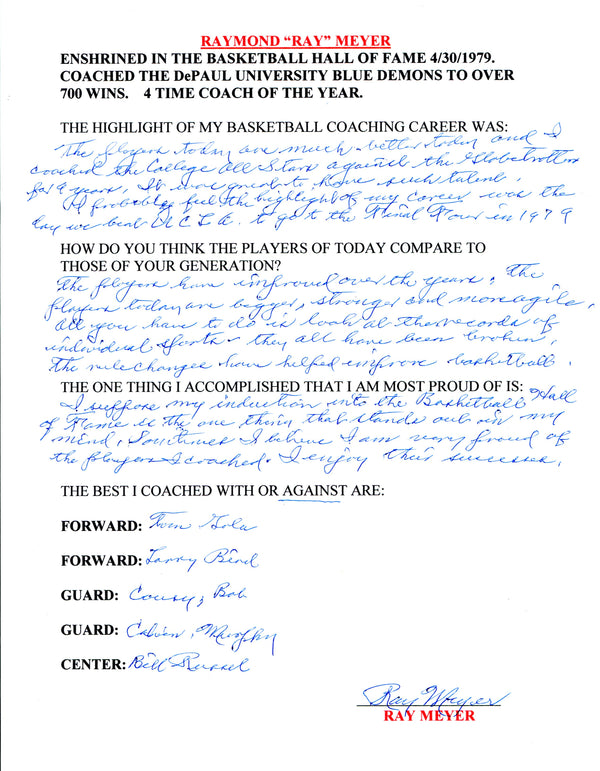 RAYMOND “RAY” MEYER
ENSHRINED IN THE BASKETBALL HALL OF FAME 4/30/1979.
COACHED THE DePAUL UNIVERSITY BLUE DEMONS TO OVER
700 WINS.   4 TIME COACH OF THE YEAR.
THE HIGHLIGHT OF MY BASKETBALL COACHING CAREER WAS:
The players today are much better today and I
coached the College All Stars against the Globetrotters
for 9 years. It was great to have such talent.
I probably feel the highlight of my career was the
day we beat UCLA. to go to the Final Four in 1979
HOW DO YOU THINK THE PLAYERS OF TODAY COMPARE TO
THOSE OF YOUR GENERATION?
The players have improved over the years, The
players today are bigger, stronger and more agile.
All you have to do is look at the records of
individual sports - they all have been broken,
The rule changes have helped improve basketball.
THE ONE THING I ACCOMPLISHED THAT I AM MOST PROUD OF IS:
I suppose my induction into the Basketball Hall
of Fame is the one thing that stands out in my
mind, Sometimes I believe I am very proud of
the players I coached. I enjoy their successes.
THE BEST I COACHED WITH OR AGAINST ARE:
FORWARD: Tom Gola
FORWARD: Larry Bird
GUARD: Cousy, Bob
GUARD: Calvin, Murphy
CENTER: Bill Russel
Ray Meyer
RAY MEYER